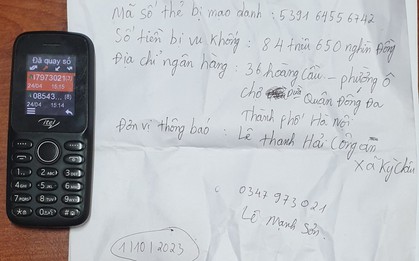 Đã quay số
I7973021(3)
24/04 16:15
08543...(8)
24/04 15:14
itel
Mã số thẻ bị mạo danh : 5391 6455 6742
Số tiền bị vu khống : 84 triệu 650 nghìn Đồng
Địa chỉ ngân hàng : 36 hoàng cầu - phường ô
chợ Dừa - Quận Đống Đa
Thành phố Hà Nội
Đơn vị thông báo : Lê thanh Hải Công an
xã Kỳ Châu
0347 973 021
Lê Mạnh Sơn
1/10/2023